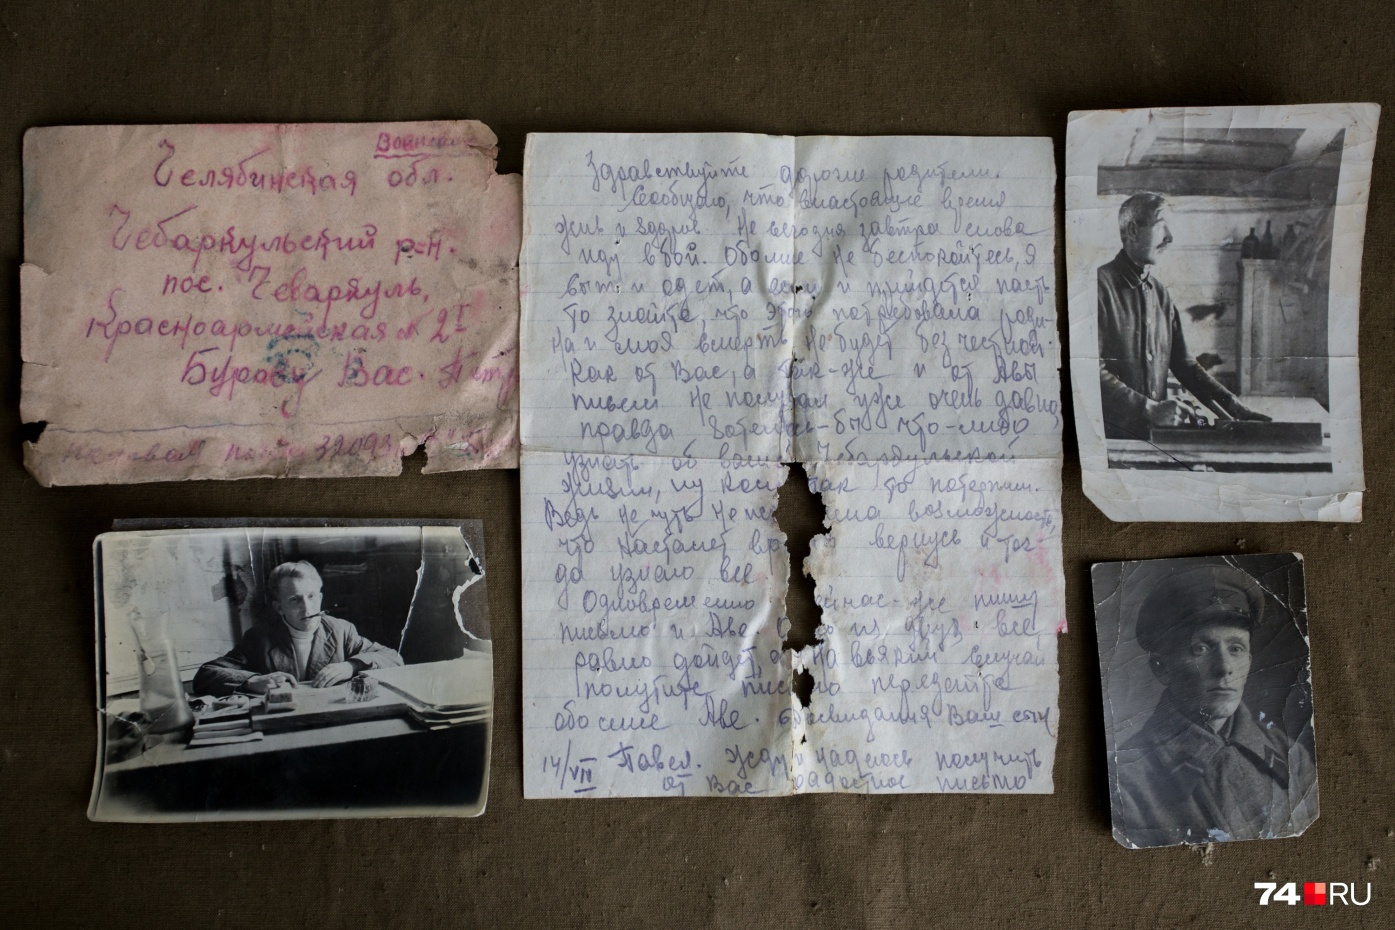 Воинское
Челябинская обл.
Чебаркульский р-н.
пос. Чебаркуль,
Красноармейская № 2
Бурову Вас.
Здравствуйте дорогие родители.
Сообщаю, что внастоящие время
жив и здоров. Не сегодня завтра снова
иду вбой. Обомне не беспокойтесь, я
сыт и одет, а если и прийдется пасть
то знайте, что этого потребовала роди-
на и моя смерть не будет безчестной.
Как от Вас, а так-же и от Авы
писем не получал уже очень давно,
правда хотелось-бы что-либо
узнать об вашей Чебаркульской
жизни, ну как так то потерпим.
Ведь не чуть не возможность,
что настанет вернусь и тог-
да узнаю все
Одновременно сейчас-же пишу
письмо и Аве, из двух все
равно дойдет, а на всякий случай
получите, письмо перешлите
обо мне Аве. Досвидания Ваш сын
14/VII Павел. Жду и надеюсь получить
от Вас радостное письмо
74 RU